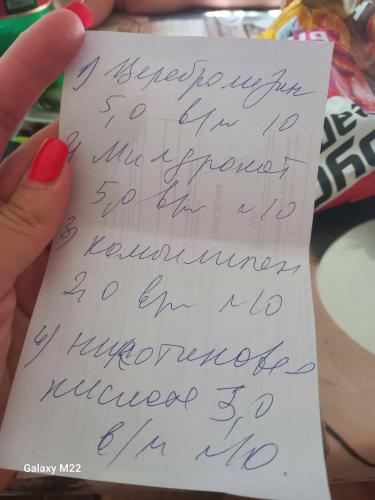 1) Церебромезин
5,0 в/м 10
2) Милдронат
5,0 в/м №10
3) Комбилипен
2,0 в/м №10
4) никотиновая
кислота 3,0
в/м №10
Galaxy M22